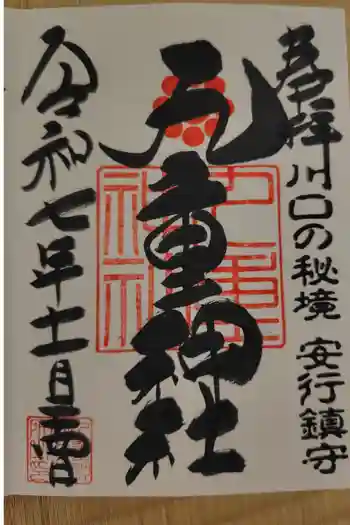 奉拝 川口の秘境 安行鎮守
九重神社
九重
神社
令和七年十一月